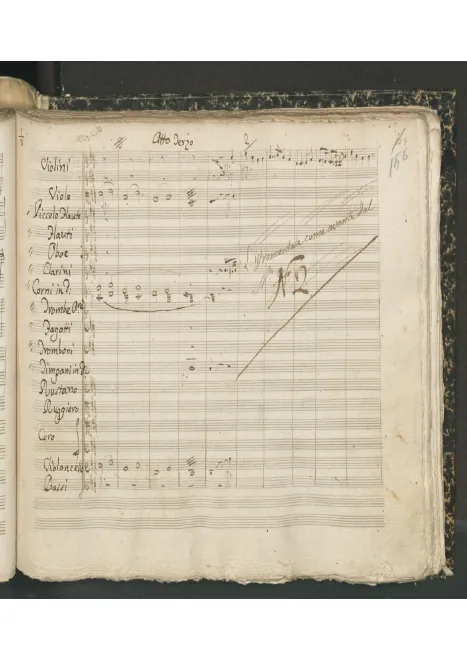 Atto Terzo
156
Violini
Viola
Piccolo Flauto
Flauti
Oboe
Clarini
Corni in
Trombe
Fagotti
Tromboni
Timpani in
Rustano
Ruggiero
Coro
Violoncello
Bassi
L'istromentale come
dal
N 2